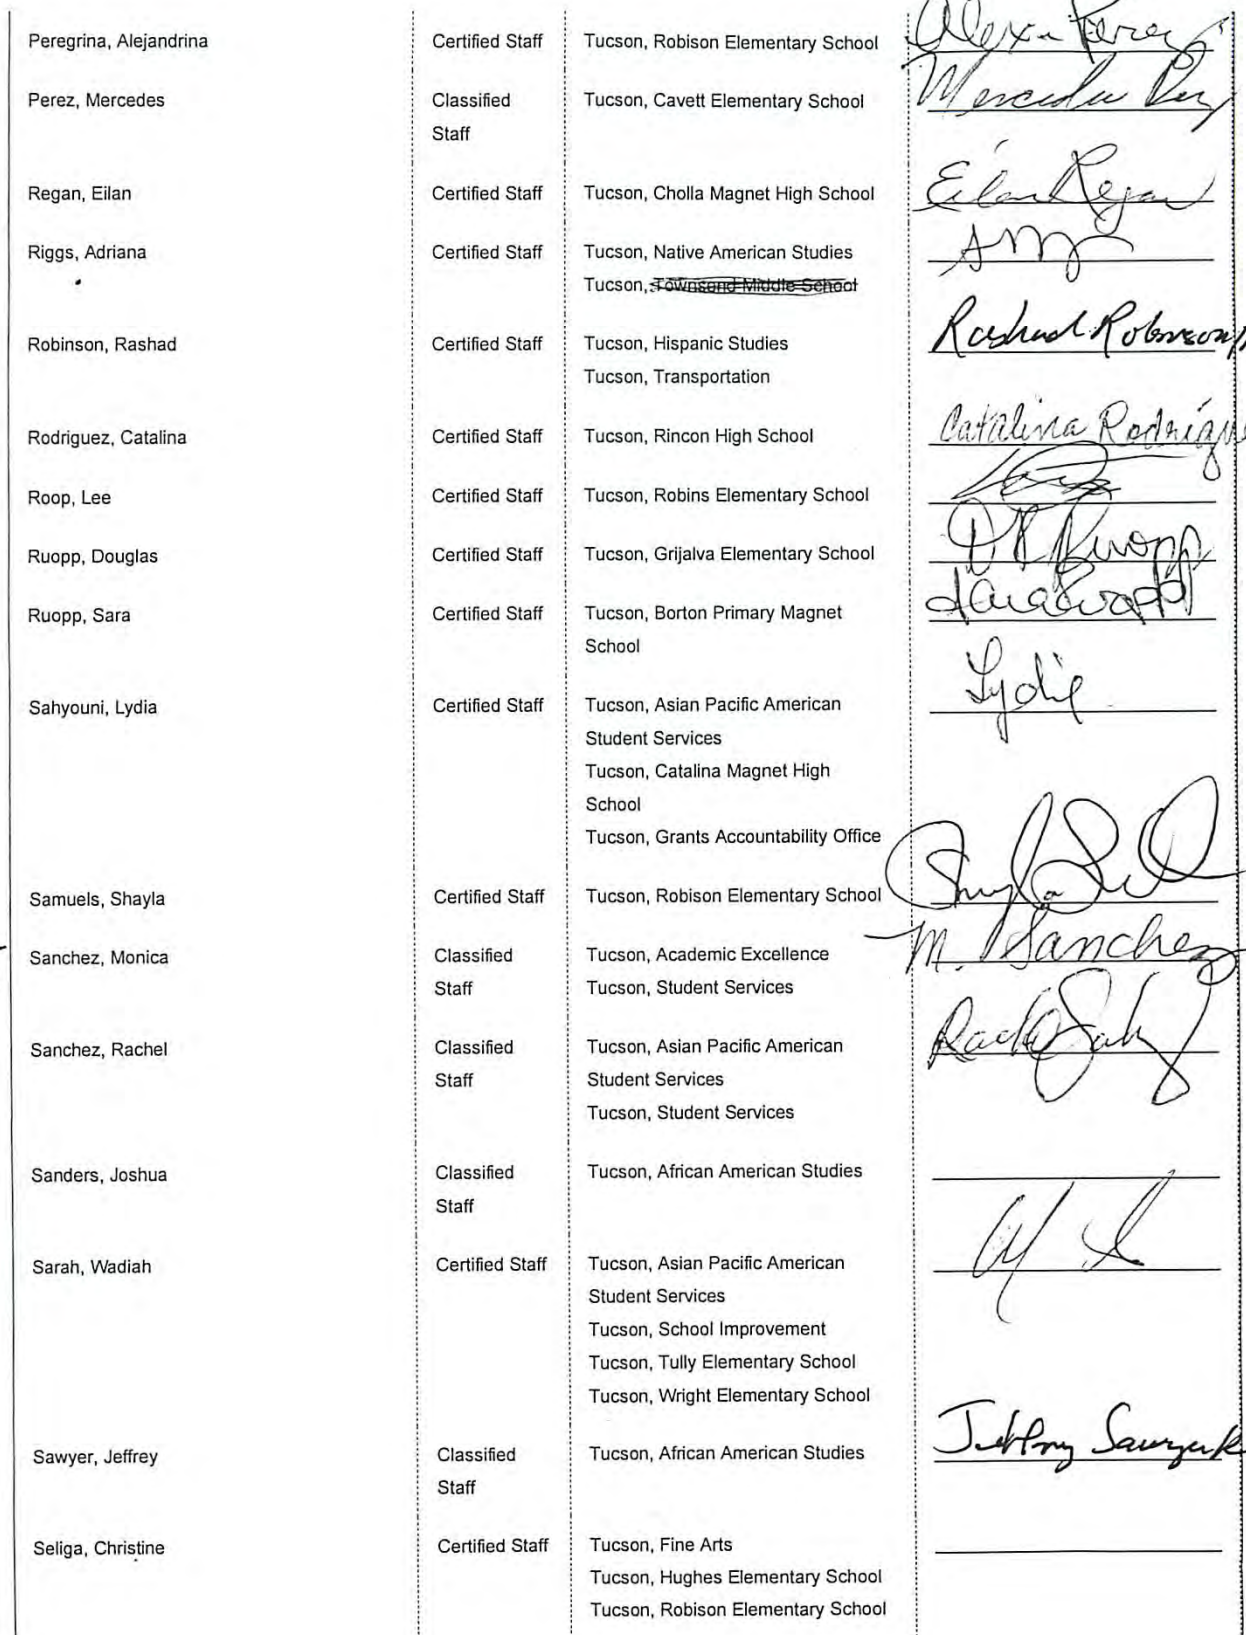 Peregrina, Alejandrina Certified Staff Tucson, Robison Elementary School Alexa Perez
Perez, Mercedes Classified Tucson, Cavett Elementary School Mercedes Perez
Staff
Regan, Eilan Certified Staff Tucson, Cholla Magnet High School Eilan Regan
Riggs, Adriana Certified Staff Tucson, Native American Studies
Tucson, Townsend Middle School
Robinson, Rashad Certified Staff Tucson, Hispanic Studies Rashad Robinson
Tucson, Transportation
Rodriguez, Catalina Certified Staff Tucson, Rincon High School Catalina Rodrigue
Roop, Lee Certified Staff Tucson, Robins Elementary School
Ruopp, Douglas Certified Staff Tucson, Grijalva Elementary School D R Ruopp
Ruopp, Sara Certified Staff Tucson, Borton Primary Magnet Sara Ruopp
School
Sahyouni, Lydia Certified Staff Tucson, Asian Pacific American Lydia
Student Services
Tucson, Catalina Magnet High
School
Tucson, Grants Accountability Office
Samuels, Shayla Certified Staff Tucson, Robison Elementary School Shayla
Sanchez, Monica Classified Tucson, Academic Excellence M. Sanchez
Staff Tucson, Student Services
Sanchez, Rachel Classified Tucson, Asian Pacific American
Staff Student Services
Tucson, Student Services
Sanders, Joshua Classified Tucson, African American Studies
Staff
Sarah, Wadiah Certified Staff Tucson, Asian Pacific American
Student Services
Tucson, School Improvement
Tucson, Tully Elementary School
Tucson, Wright Elementary School
Sawyer, Jeffrey Classified Tucson, African American Studies Jeffrey Sawyer
Staff
Seliga, Christine Certified Staff Tucson, Fine Arts
Tucson, Hughes Elementary School
Tucson, Robison Elementary School